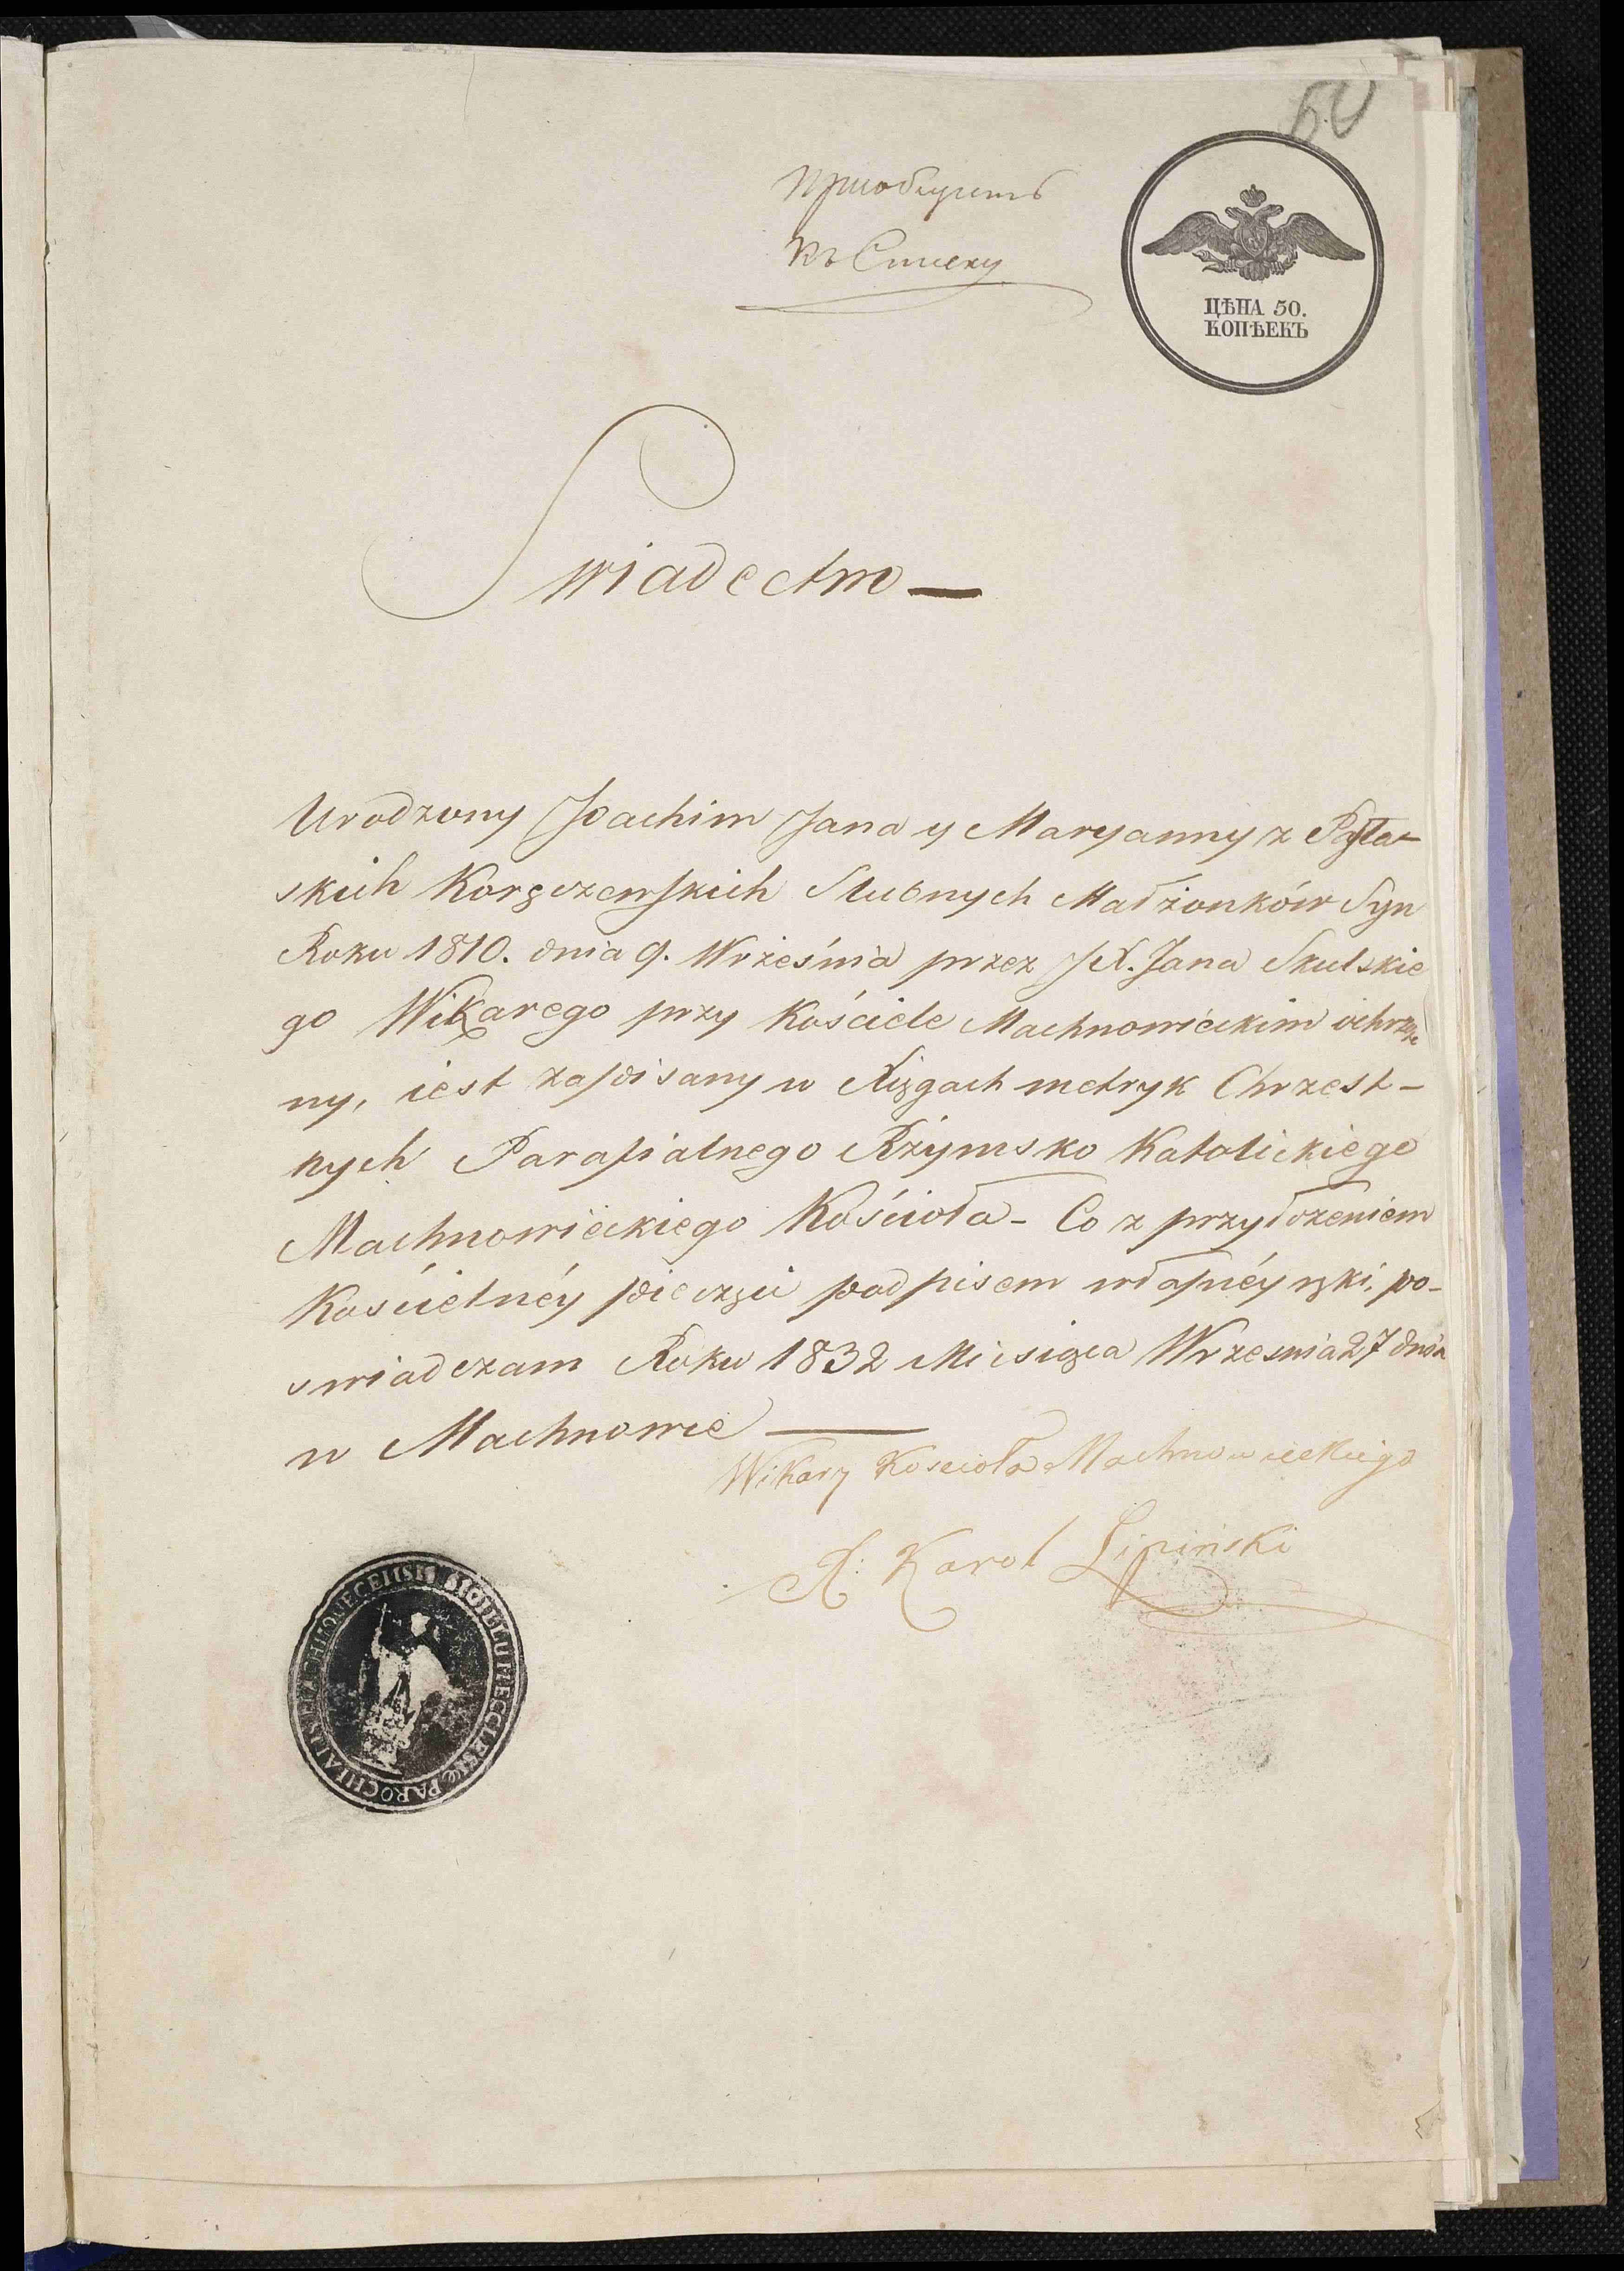 60
Приобщить
къ Списку
ЦѢНА 50.
КОПѢЕКЪ
Swiadectwo —
Urodzony Joachim Jana y Maryanny z
skich Korzczewskich Slubnych Małżonków Syn
Roku 1810. dnia 9. Września przez JX. Jana Skulskie
go Wikarego przy Kościele Machnowieckim ochrzczo
ny, iest zapisany w Xięgach metryk Chrzest-
nych Parafialnego Rzymsko Katolickiego
Machnowieckiego Kościoła - Co z przyłożeniem
Kościelnéy pieczęci podpisem własnéy ręki, po-
swiadczam Roku 1832 Miesiąca Wrzesnia 27 dnia
w Machnowce —
Wikary Koscioła Machnowieckiego
X: Karol Lipiński
PAROCHIALIS